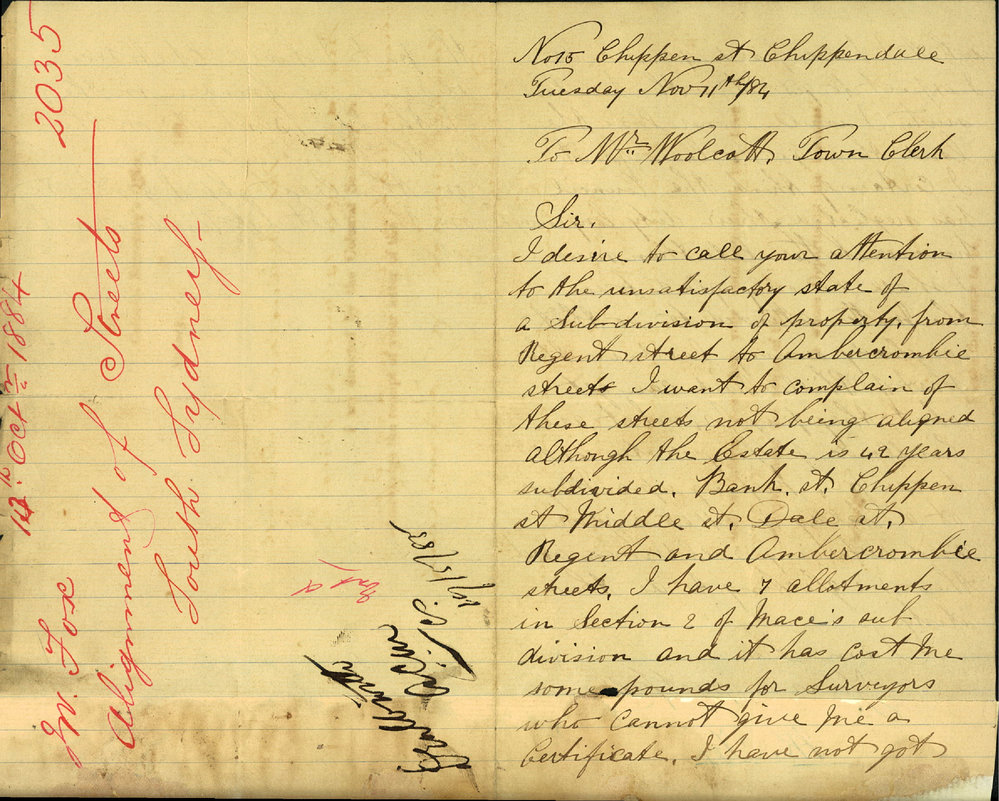 No 15 Chippen st Chippendale
Tuesday Nov 11th/84
To Mr. Woolcott, Town Clerk
Sir.
I desire to call your attention
to the unsatisfactory state of
a Subdivision of property, from
Regent street to Ambercrombie
streets I want to complain of
these streets not being aligned
although the Estate is 42 years
subdivided. Bank. st. Chippen
st Middle st. Dale st.
Regent and Ambercrombie
streets. I have 7 allotments
in Section 2 of Mace's sub
division and it has cost me
some pounds for Surveyors
who cannot give me a
Certificate. I have not got
2035
Oct 1884
W. Fox
Alignment of Streets
South Sydney